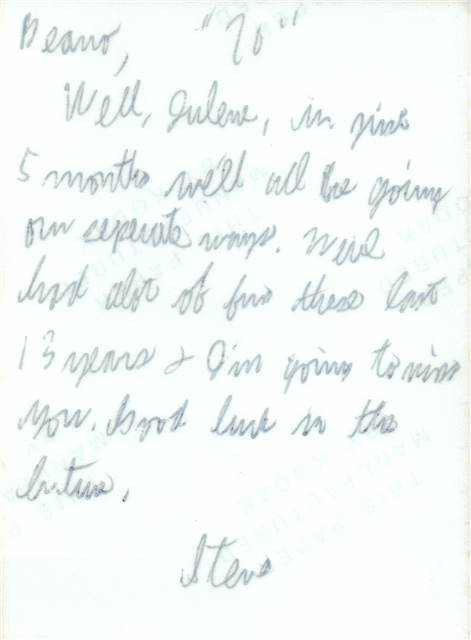 Beano, "70"
Well, Julene, in just
5 months we'll all be going
our seperate ways. We've
had alot of fun these last
13 years & I'm going to miss
you. Good luck in the
future.
Steve
THIS PAPER
MANUFACTURED
BY KODAK